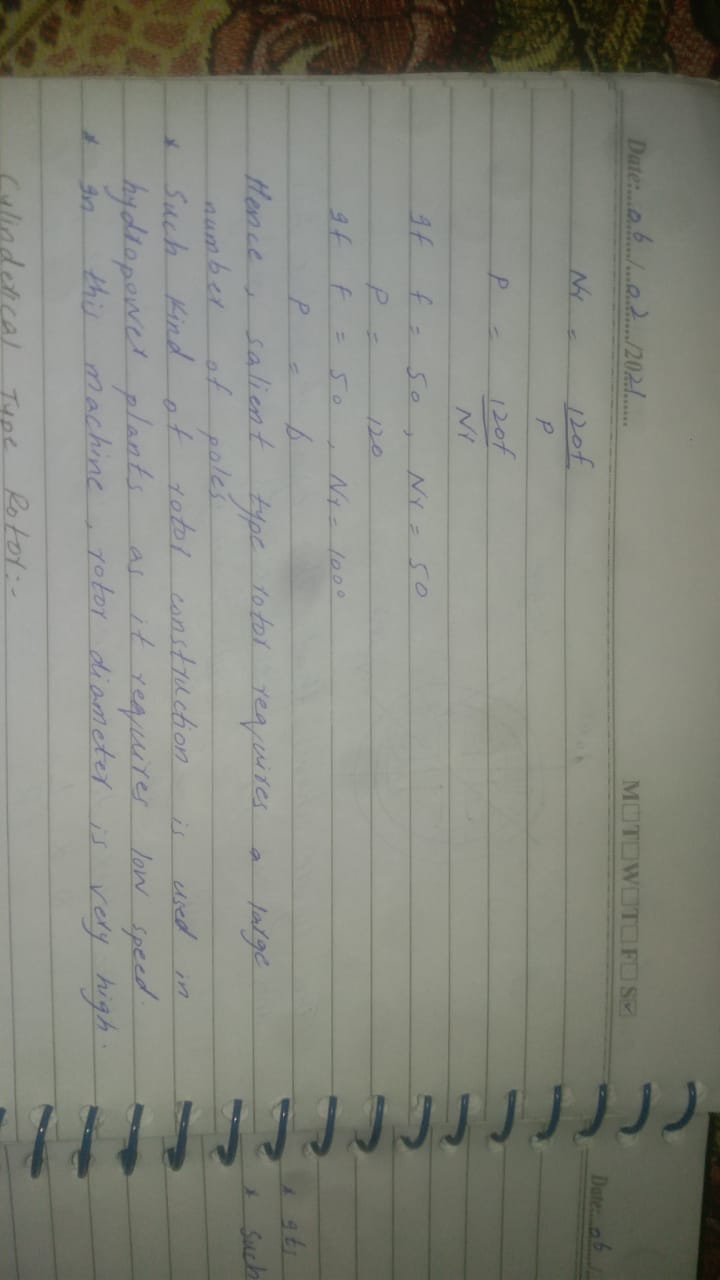 Date:...06.../...02.../2021......
M T W T F S
Nr = 120f
P
P = 120f
Nr
If f = 50, Nr = 50
P = 120
If f = 50, Nr = 1000
P = 6
Hence, salient type rotor requires a large
number of poles.
* Such kind of rotor construction is used in
hydropower plants as it requires low speed.
* In this machine, rotor diameter is very high.
Cylinderical Type Rotor:-
Date:...06/
* Its
* Such